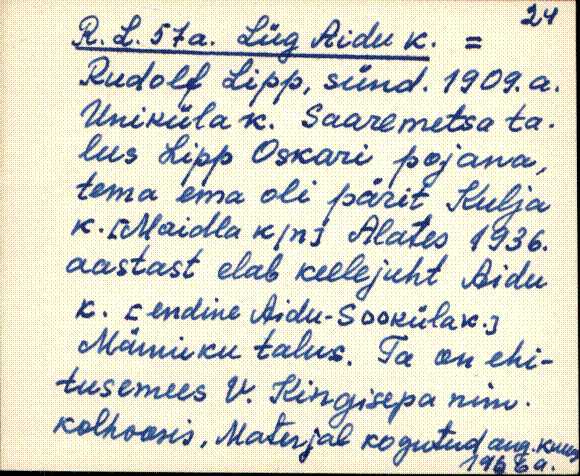 24
R. L. 57a. Lüg Aidu k. =
Rudolf Lipp, sünd. 1909. a.
Uniküla k. Saaremetsa ta-
lus Lipp Oskari pojana,
tema ema oli pärit Kulja
k. [Maidla k/n] Alates 1936.
aastast elab keelejuht Aidu
k. [endine Aidu-Sooküla k.]
Männiku talus. Ta on ehi-
tusemees V. Kingisepa nim.
kolhoosis. Materjal kogutud aug. kuus
1966 a.